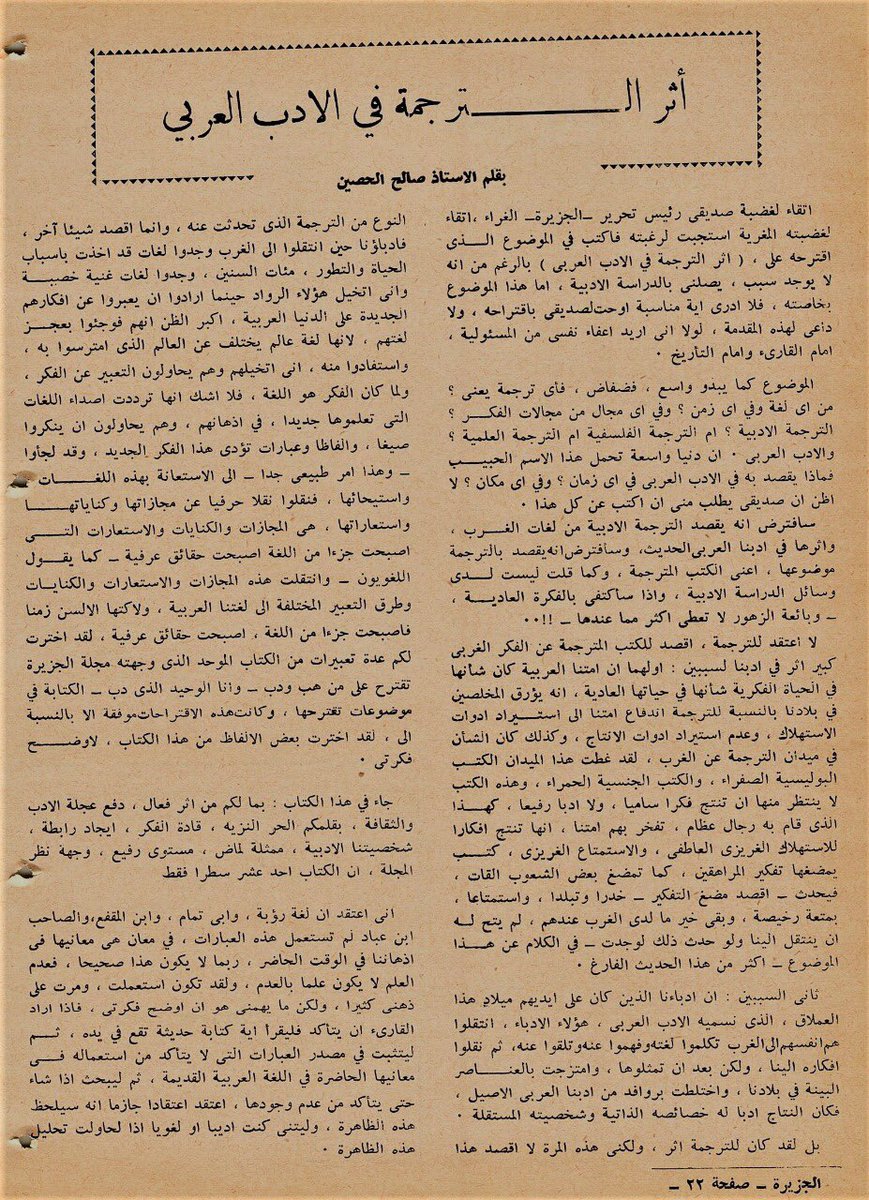 أثر الـــــترجمة في الادب العربي
بقلم الاستاذ صالح الحصين
اتقاء لغضبة صديقى رئيس تحرير ــالجزيرةــ الغراء ،اتقاء
لغضبته المغرية استجبت لرغبته فاكتب في الموضوع الـــذى
اقترحه على ، ( اثر الترجمة في الادب العربى ) بالرغم من انه
لا يوجد سبب ، يصلنى بالدراسة الادبية ، اما هذا الموضوع
بخاصته ، فلا ادرى اية مناسبة اوحت لصديقى باقتراحه ، ولا
داعى لهذه المقدمة ، لولا انى اريد اعفاء نفسى من المسئولية ،
امام القارىء وامام التأريخ ٠
الموضوع كما يبدو واسع ، فضفاض ، فأى ترجمة يعنى ؟
من اى لغة وفي اى زمن ؟ وفي اى مجال من مجالات الفكــر ؟
الترجمة الادبية ؟ ام الترجمة الفلسفية ام الترجمة العلمية ؟
والادب العربى ٠ ان دنيا واسعة تحمل هذا الاسم الحبيــب
فماذا يقصد به في الادب العربى في اى زمان ؟ وفي اى مكان ؟ لا
اظن ان صديقى يطلب منى ان اكتب عن كل هذا ٠
سأفترض انه يقصد الترجمة الادبية من لغات الغرب ،
واثرها في ادبنا العربى الحديث، وسأفترض انه يقصد بالترجمة
موضوعها ، اعنى الكتب المترجمة ، وكما قلت ليست لــدى
وسائل الدراسة الادبية ، واذا سأكتفى بالفكرة العاديــة ،
ــ وبائعة الزهور لا تعطى اكثر مما عندها ــ !!٠٠
لا اعتقد للترجمة ، اقصد للكتب المترجمة عن الفكر الغربى
كبير اثر في ادبنا لسببين : اولهما ان امتنا العربية كان شأنها
في الحياة الفكرية شأنها في حياتها العادية ، انه يؤرق المخلصين
في بلادنا بالنسبة للترجمة اندفاع امتنا الى استــيراد ادوات
الاستهلاك ، وعدم استيراد ادوات الانتاج ، وكذلك كان الشأن
في ميدان الترجمة عن الغرب ، لقد غطت هذا الميدان الكتــب
البوليسية الصفراء ، والكتب الجنسية الحمراء ، وهذه الكتب
لا ينتظر منها ان تنتج فكرا ساميا ، ولا ادبا رفيعا ، كهــذا
الذى قام به رجال عظام ، تفخر بهم امتنا ، انها تنتج افكارا
للاستهلاك الغريزى العاطفى ، والاستمتاع الغريزى ، كتــب
يمضغها تفكير المراهقين ، كما تمضغ بعض الشعوب القات ،
فيحدث ــ اقصد مضغ التفكير ــ خدرا وتبلدا ، واستمتاعا ،
بمتعة رخيصة ، وبقى خير ما لدى الغرب عندهم ، لم يتح لــه
ان ينتقل الينا ولو حدث ذلك لوجدت ــ في الكلام عن هــذا
الموضوع ــ اكثر من هذا الحديث الفارغ ٠
ثانى السببين : ان ادباءنا الذين كان على ايديهم ميلاد هذا
العملاق ، الذى نسميه الادب العربى ، هؤلاء الادباء ، انتقلوا
هم انفسهم الى الغرب تكلموا لغته وفهموا عنه وتلقوا عنه، ثم نقلوا
افكاره الينا ، ولكن بعد ان تمثلوها ، وامتزجت بالعنــاصر
البيئة في بلادنا ، واختلطت بروافد من ادبنا العربى الاصيل ،
فكان النتاج ادبا له خصائصه الذاتية وشخصيته المستقلة ٠
بل لقد كان للترجمة اثر ، ولكنى هذه المرة لا اقصد هذا
النوع من الترجمة الذى تحدثت عنه ، وانما اقصد شيئا آخر ،
فادباؤنا حين انتقلوا الى الغرب وجدوا لغات قد اخذت باسباب
الحياة والتطور ، مئات السنين ، وجدوا لغات غنية خصبــة
وانى اتخيل هؤلاء الرواد حينما ارادوا ان يعبروا عن افكارهم
الجديدة على الدنيا العربية ، اكبر الظن انهم فوجئوا بعجــز
لغتهم ، لانها لغة عالم يختلف عن العالم الذى امترسوا به ،
واستفادوا منه ، انى اتخيلهم وهم يحاولون التعبير عن الفكر ،
ولما كان الفكر هو اللغة ، فلا اشك انها ترددت اصداء اللغات
التى تعلموها جديدا ، في اذهانهم ، وهم يحاولون ان ينكروا
صيغا ، والفاظا وعبارات تؤدى هذا الفكر الجديد ، وقد لجأوا
ــ وهذا امر طبيعى جدا ــ الى الاستعانة بهذه اللغــات ،
واستيحائها ، فنقلوا نقلا حرفيا عن مجازاتها وكناياتهــا
واستعاراتها ، هى المجازات والكنايات والاستعارات التــى
اصبحت جزءا من اللغة اصبحت حقائق عرفية ــ كما يقــول
اللغويون ــ وانتقلت هذه المجازات والاستعارات والكنايــات
وطرق التعبير المختلفة الى لغتنا العربية ، ولاكتها الالسن زمنا
فاصبحت جزءا من اللغة ، اصبحت حقائق عرفية ، لقد اخترت
لكم عدة تعبيرات من الكتاب الموحد الذى وجهته مجلة الجزيرة
تقترح على من هب ودب ــ وانا الوحيد الذى دب ــ الكتابة في
موضوعات تقترحها ، وكانت هذه الاقتراحات موفقة الا بالنسبة
الى ، لقد اخترت بعض الالفاظ من هذا الكتاب ، لاوضــح
فكرتى ٠
جاء في هذا الكتاب : بما لكم من اثر فعال ، دفع عجلة الادب
والثقافة ، بقلمكم الحر النزيه ، قادة الفكر ، ايجاد رابطة ،
شخصيتنا الادبية ، ممثلة لماض ، مستوى رفيع ، وجهة نظر
المجلة ، ان الكتاب احد عشر سطرا فقط
انى اعتقد ان لغة رؤبة ، وابى تمام ، وابن المقفع،والصاحب
ابن عباد لم تستعمل هذه العبارات ، في معان هى معانيها فى
اذهاننا في الوقت الحاضر ، ربما لا يكون هذا صحيحا ، فعدم
العلم لا يكون علما بالعدم ، ولقد تكون استعملت ، ومرت على
ذهنى كثيرا ، ولكن ما يهمنى هو ان اوضح فكرتى ، فاذا اراد
القارىء ان يتأكد فليقرأ اية كتابة حديثة تقع في يده ، ثــم
ليتثبت في مصدر العبارات التى لا يتأكد من استعماله فــى
معانيها الحاضرة في اللغة العربية القديمة ، ثم ليبحث اذا شاء
حتى يتأكد من عدم وجودها ، اعتقد اعتقادا جازما انه سيلحظ
هذه الظاهرة ، وليتنى كنت اديبا او لغويا اذا لحاولت تحليل
هذه الظاهرة ٠
الجزيرة ــ صفحة ٢٢ ــ